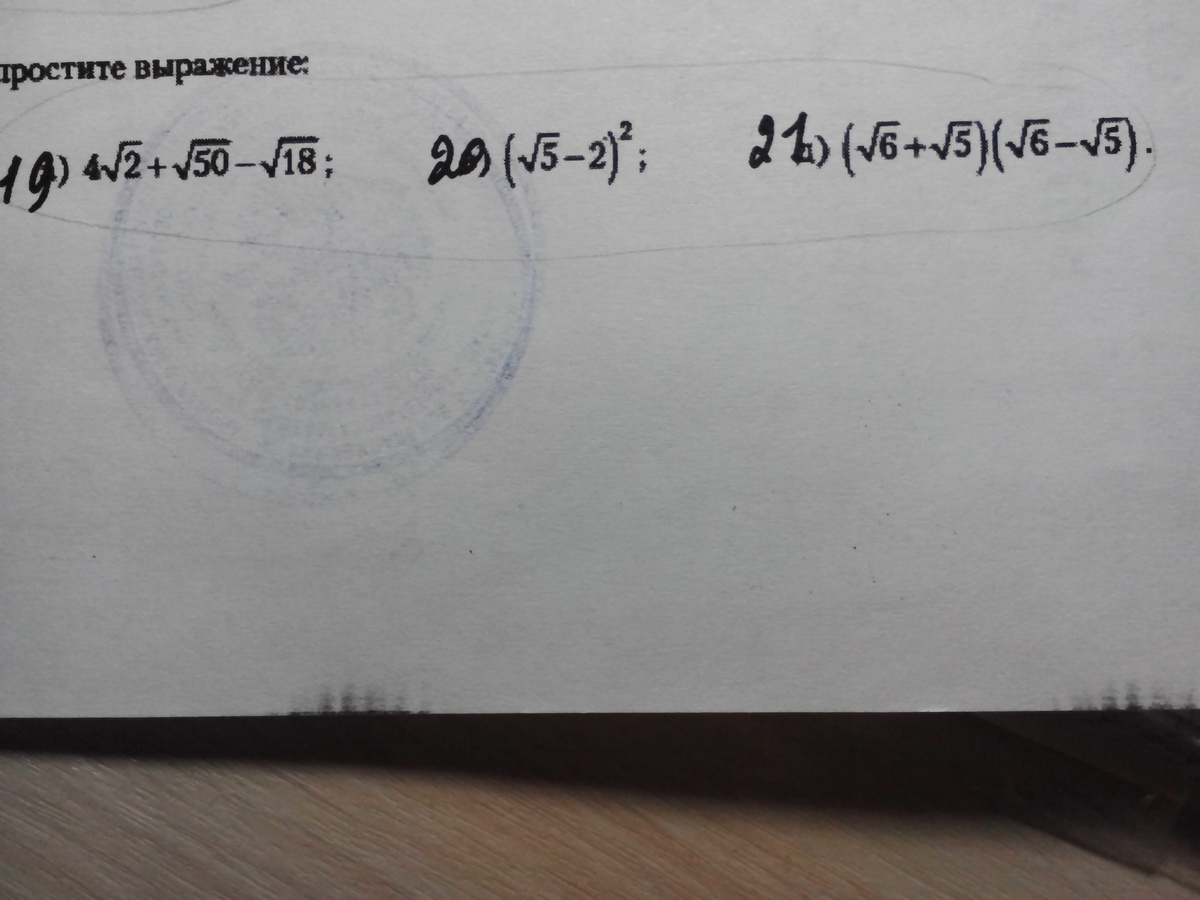 простите выражение:
19) 4√2+√50−√18; 20) (√5−2)²; 21) (√6+√5)(√6−√5).